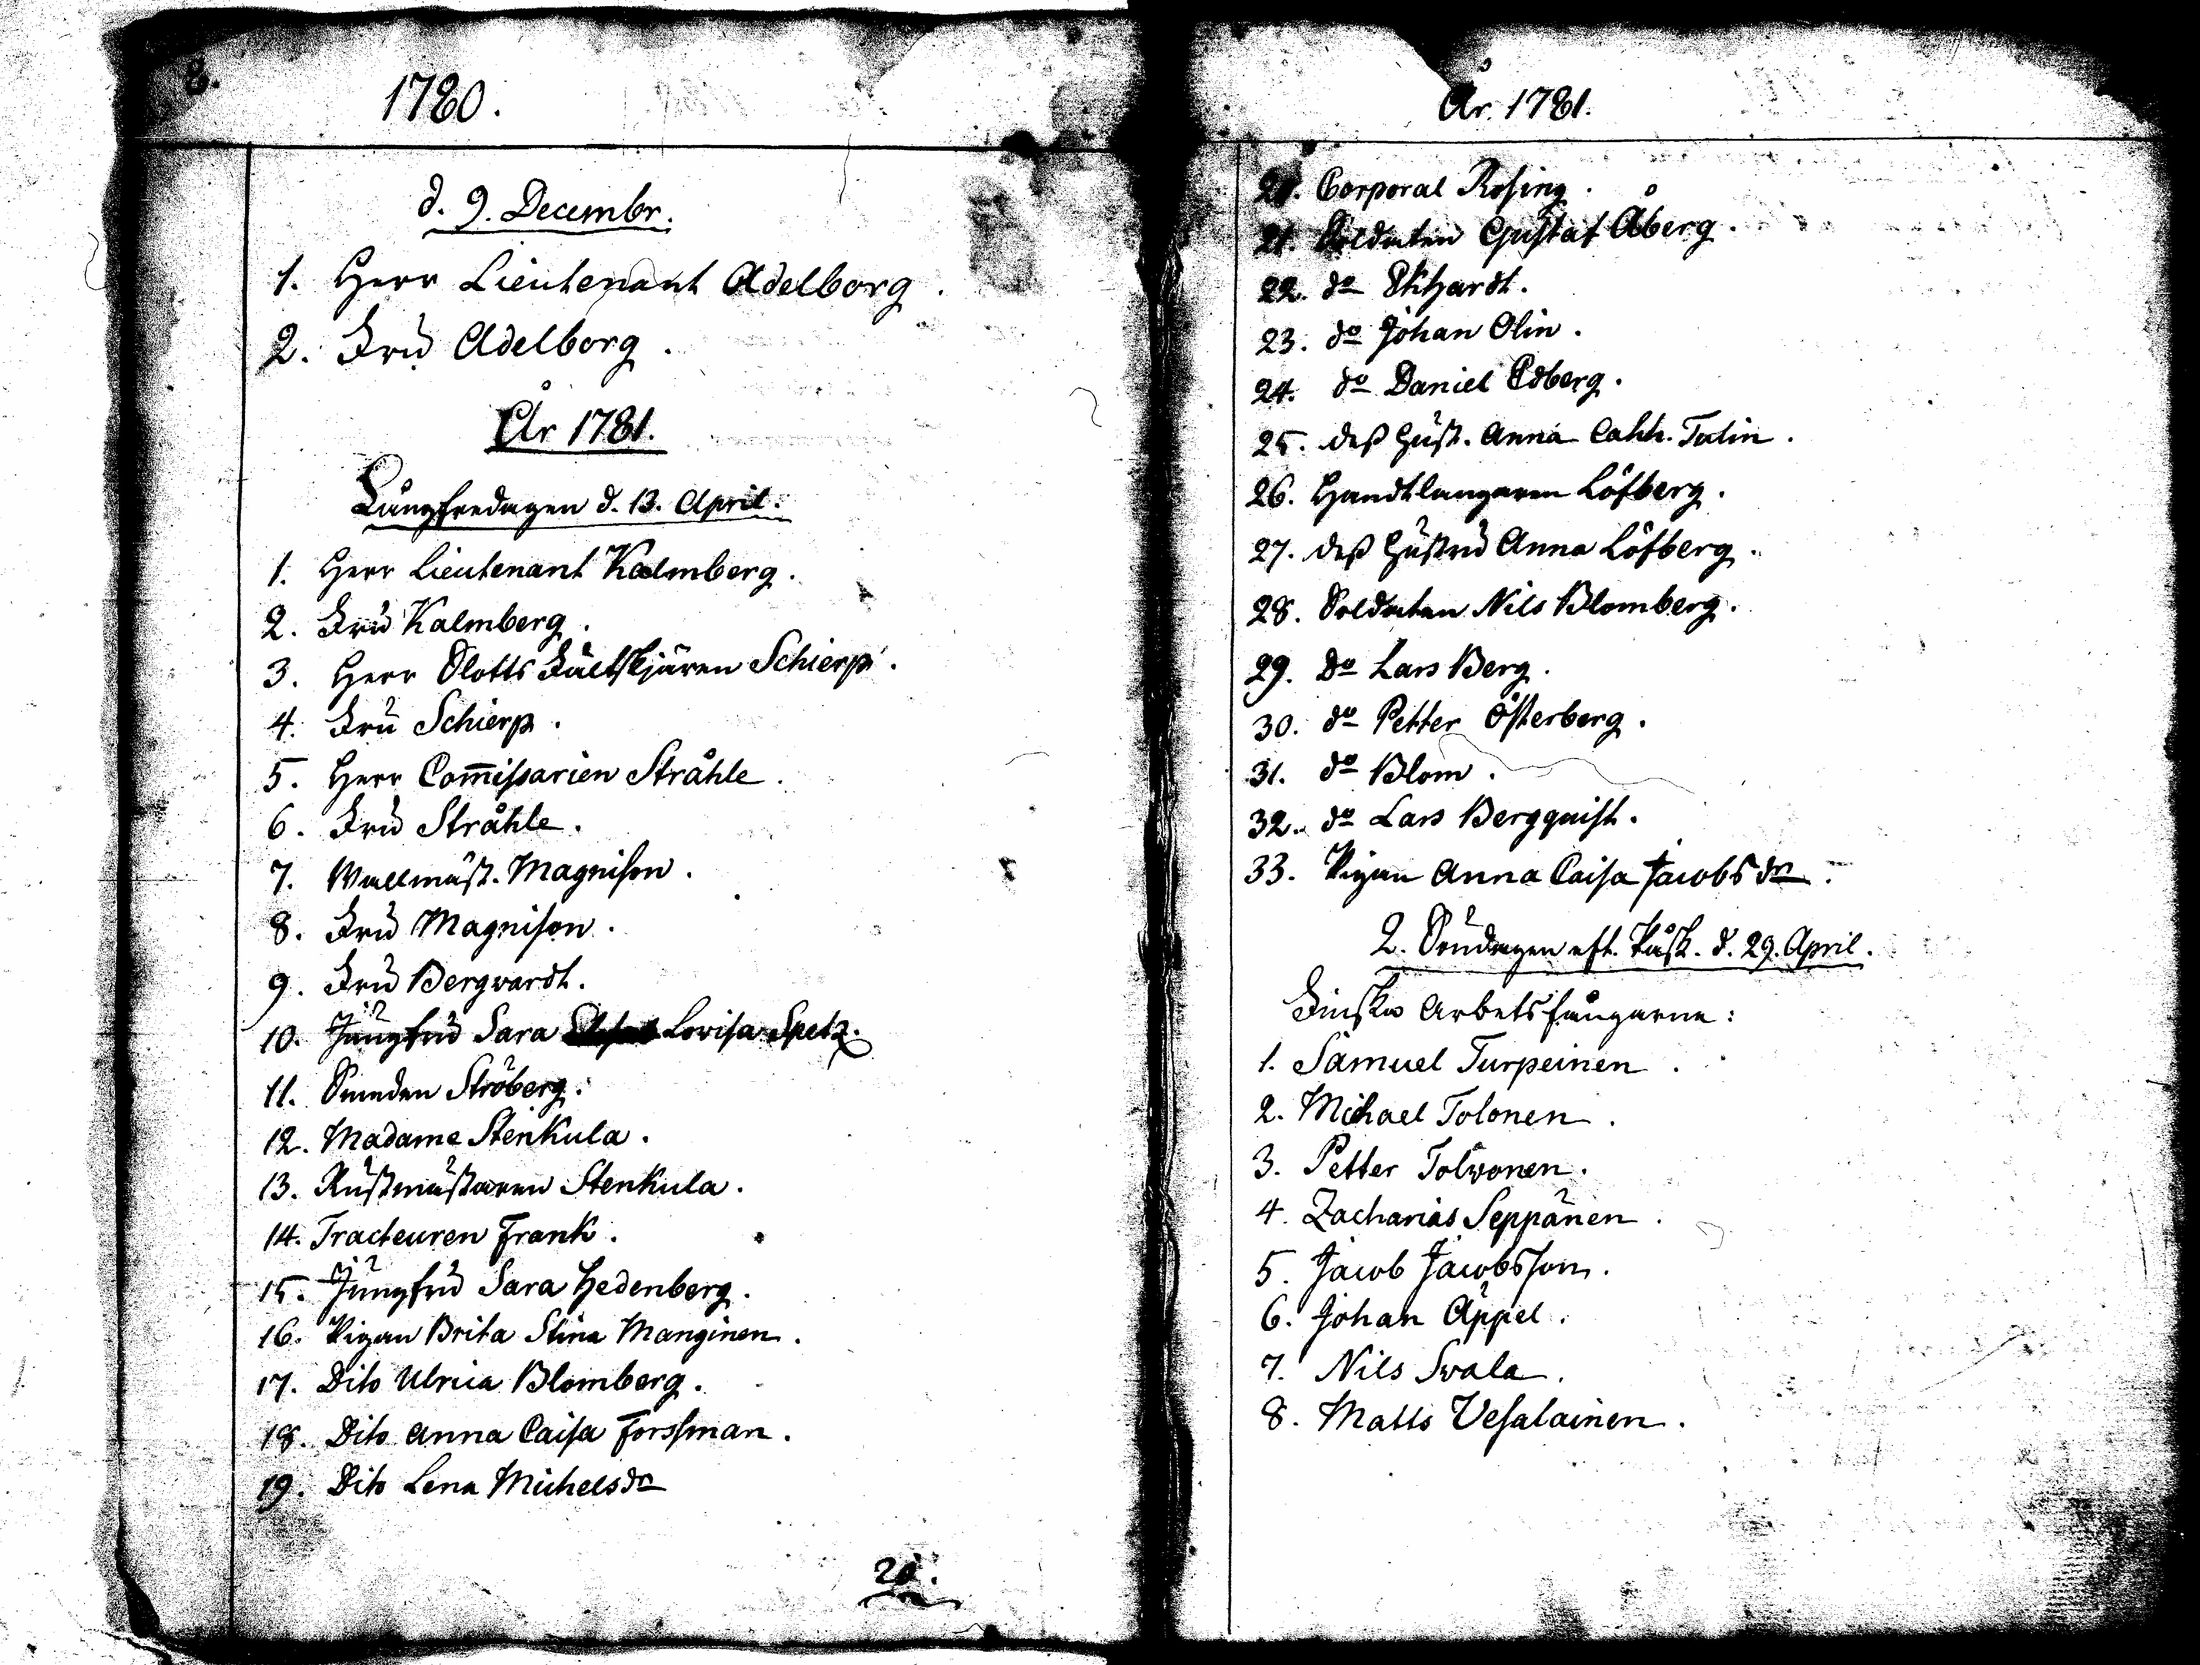 8.
1780.
d. 9. Decembr.
1. Herr Lieutenant Adelborg.
2. Fru Adelborg.
År 1781.
Långfredagen d. 13. April.
1. Herr Lieutenant Kalmberg.
2. Fru Kalmberg.
3. Herr Slotts Fältskjären Schierp.
4. Fru Schierp.
5. Herr Com̅issarien Stråhle.
6. Fru Stråhle.
7. Wallmäst. Magnison.
8. Fru Magnison.
9. Fru Bergwardt.
10. Jungfru Sara Lovisa Spetz.
11. Smeden Ströberg.
12. Madame Stenkula.
13. Rustmästaren Stenkula.
14. Tracteuren Frank.
15. Jungfru Sara Hedenberg.
16. Pigan Brita Stina Manginen.
17. Dito Ulrica Blomberg.
18. Dito Anna Caisa Forssman.
19. Dito Lena Michelsdr
20.
År 1781.
20. Corporal Rosing.
21. Soldaten Gustaf Åberg.
22. do Ekhardt.
23. do Johan Olin.
24. do Daniel Edberg.
25. dess Hust. Anna Cath. Talin.
26. Handtlangaren Löfberg.
27. dess Hustru Anna Löfberg.
28. Soldaten Nils Blomberg.
29. Do Lars Berg.
30. do Petter Österberg.
31. do Blom.
32. do Lars Bergquist.
33. Pigan Anna Caisa Jacobsdr.
2. Söndagen eft. Påsk. d. 29. April.
Finska Arbetsfångarne:
1. Samuel Turpeinen.
2. Michael Tolonen.
3. Petter Tolwonen.
4. Zacharias Seppänen.
5. Jacob Jacobsson.
6. Johan Äppel.
7. Nils Swala.
8. Matts Vesalainen.